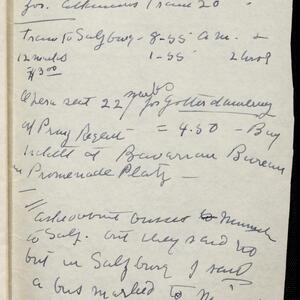 for. Train 20
Train to Salzburg - 8-55 a.m. +
12 marks 1-55 2 hrs
$3.00
Opera seat 22 marks for Gotterdamerung
at Prinz Regent - = 4.50 - Buy
tickets at Bavarian Bureau
in Promenade Platz -
Asked about buses to Munich
to Salz. but they said no
but in Salzburg I said
a bus marked to M